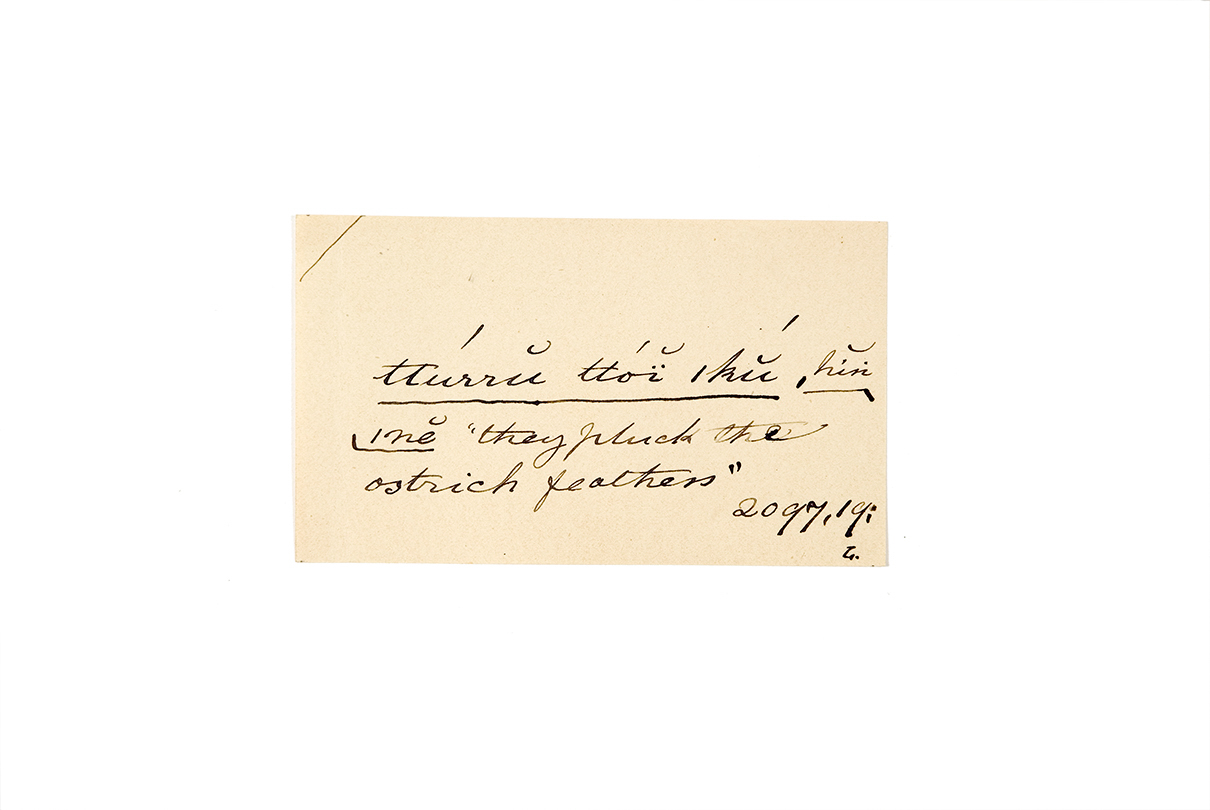 ttúrrŭ ttóï̆ ıkŭ́, hĭń
ınĕ "they pluck the
ostrich feathers"
2097, 19;